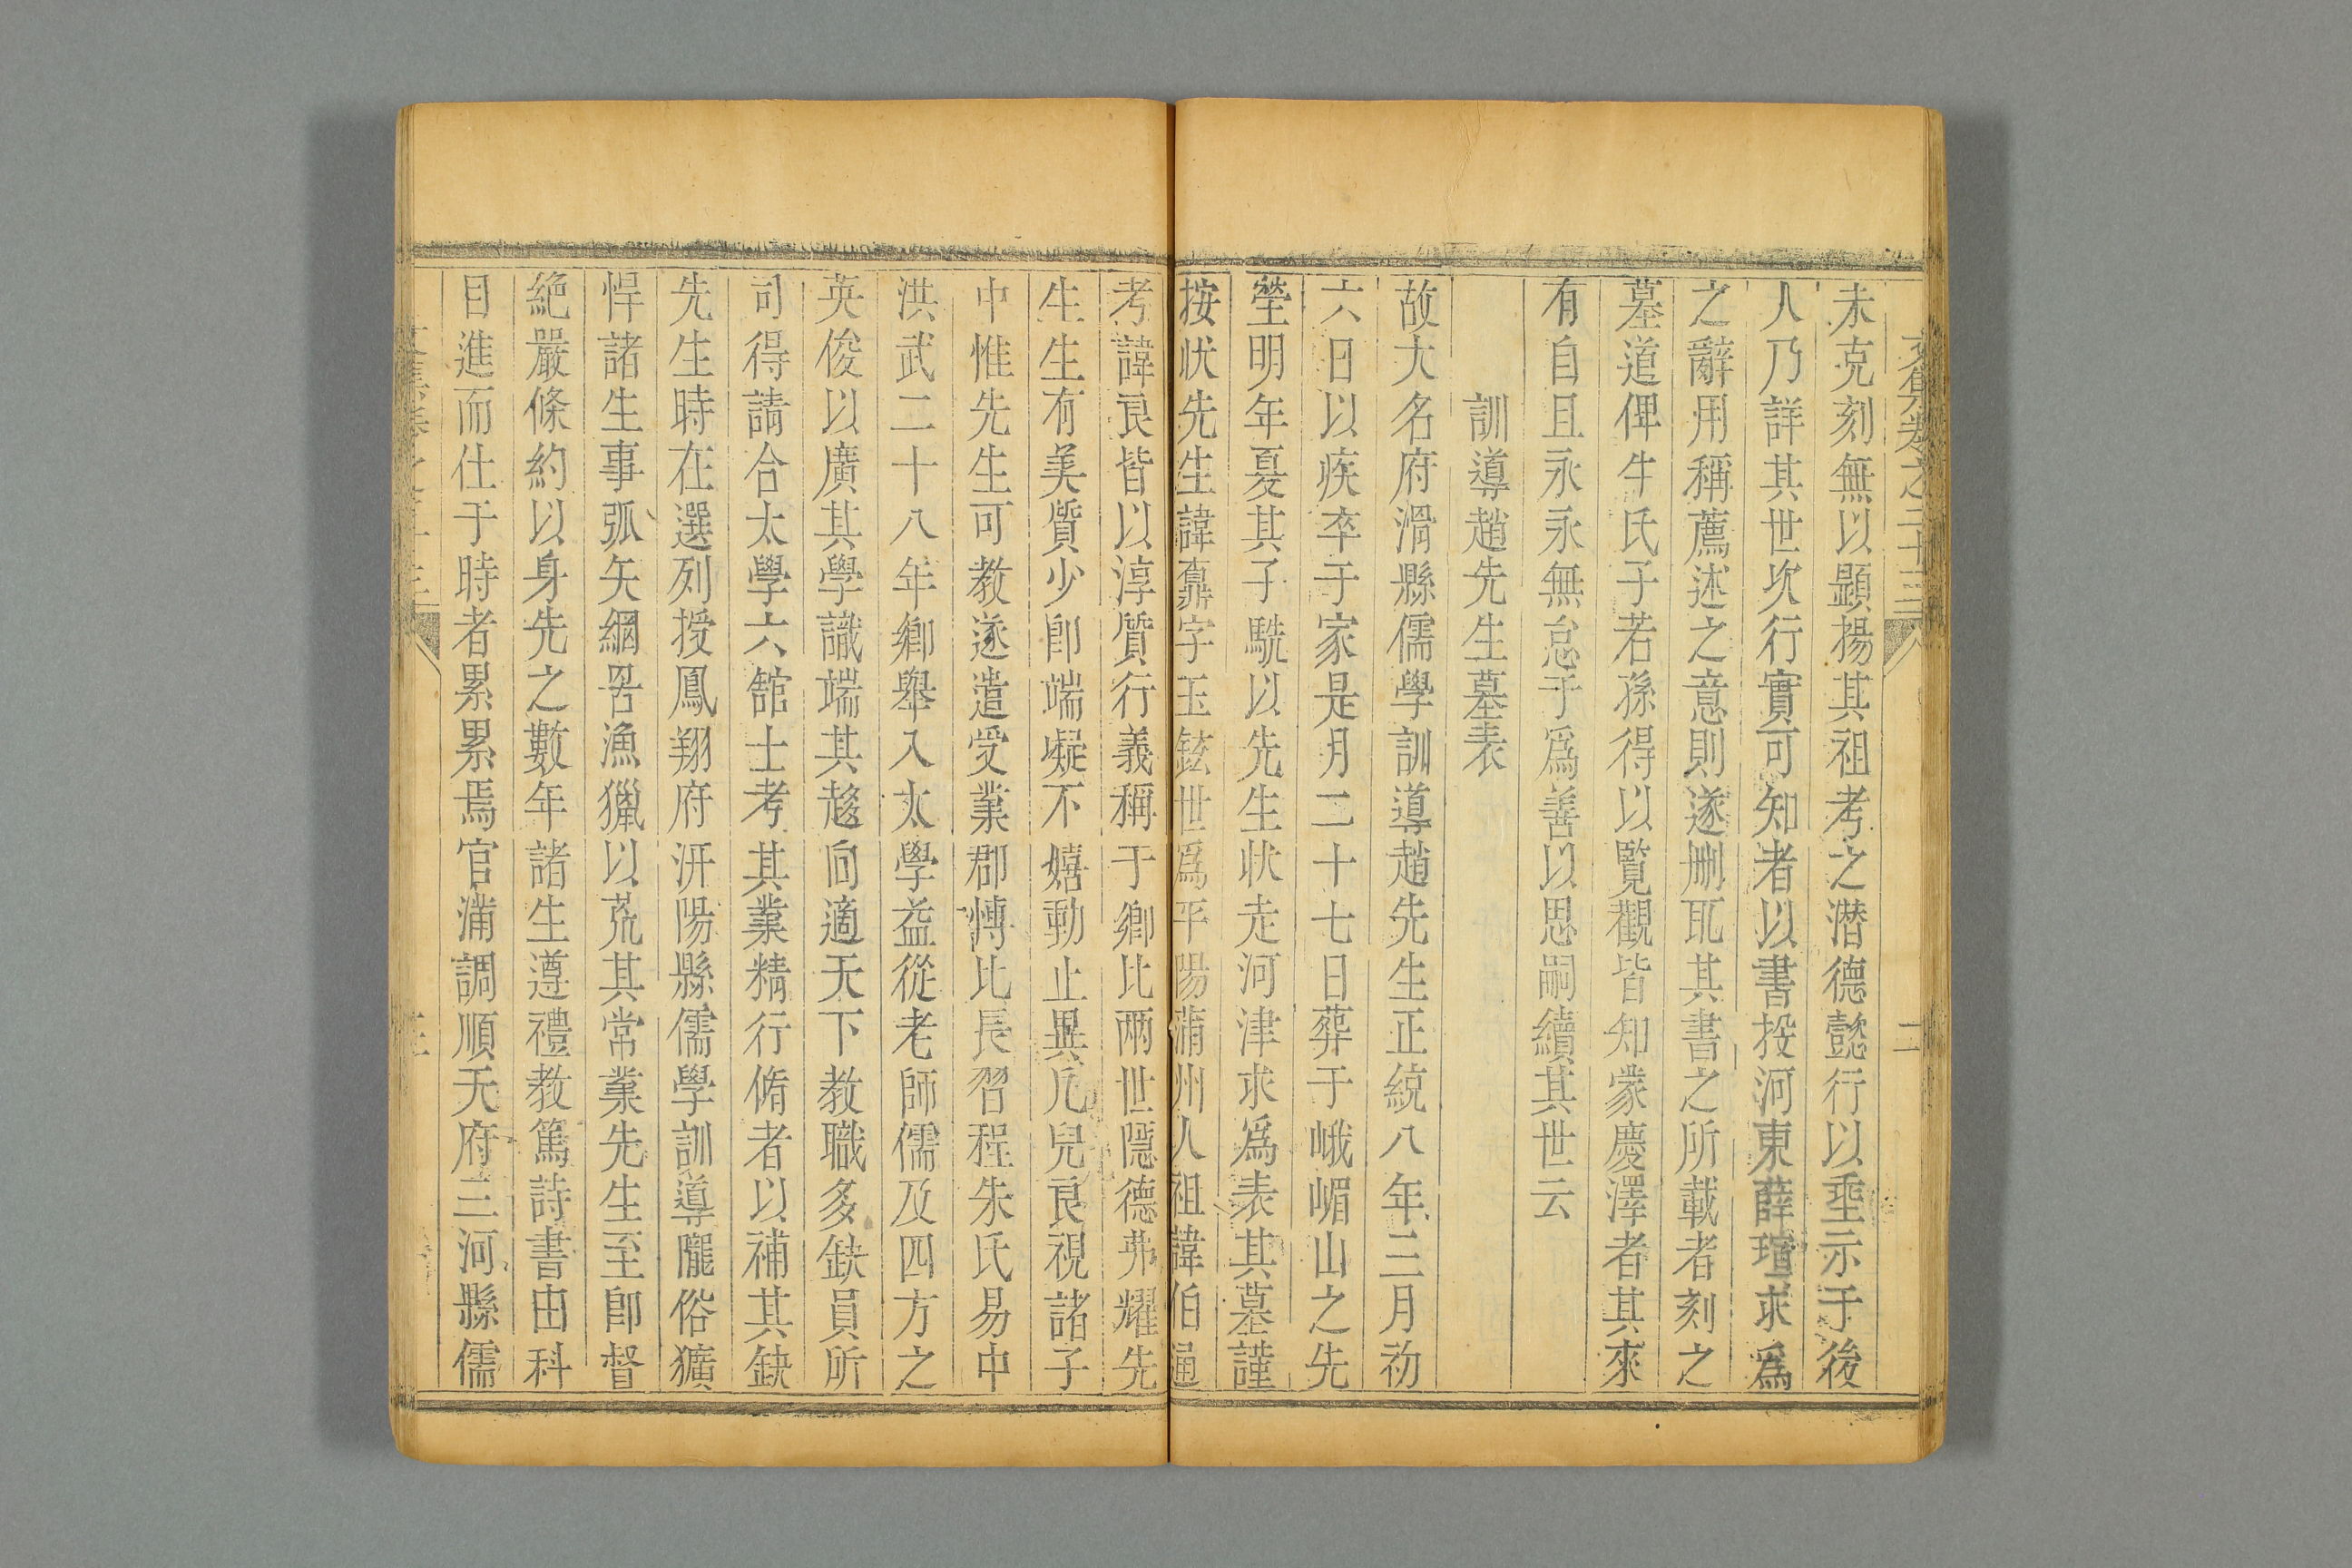 文集卷之二十三
二
未克刻無以顯揚其祖考之潜德懿行以埀示于後
人乃詳其世次行實可知者以書投河東薛瑄求爲
之辭用稱薦述之意則遂刪㽞其書之所載者刻之
墓道俾牛氏子若孫得以覧觀皆知蒙慶澤者其來
有自且永永無怠于爲善以思嗣續其世云
訓導趙先生墓表
故大名府滑縣儒學訓導趙先生正統八年三月初
六日以疾卒于家是月二十七日葬于峨嵋山之先
塋明年夏其子駪以先生状走河津求爲表其墓謹
按状先生諱鼐字玉鉉世爲平陽蒲州人祖諱伯通
考諱良皆以淳質行義稱于鄉比兩世隱德弗耀先
生生有美質少即端凝不嬉動止異凢兒良視諸子
中惟先生可教遂遣受業郡慱比長習程朱氏易中
洪武二十八年鄉舉入太學益從老師儒及四方之
英俊以廣其學識端其趍向適天下教職多缺員所
司得請合太學六舘士考其業精行脩者以補其缺
先生時在選列授鳳翔府汧陽縣儒學訓導隴俗獷
悍諸生事弧矢網罟漁獵以荒其常業先生至即督
絶嚴條約以身先之數年諸生遵禮教篤詩書由科
目進而仕于時者累累焉官滿調順天府三河縣儒
三